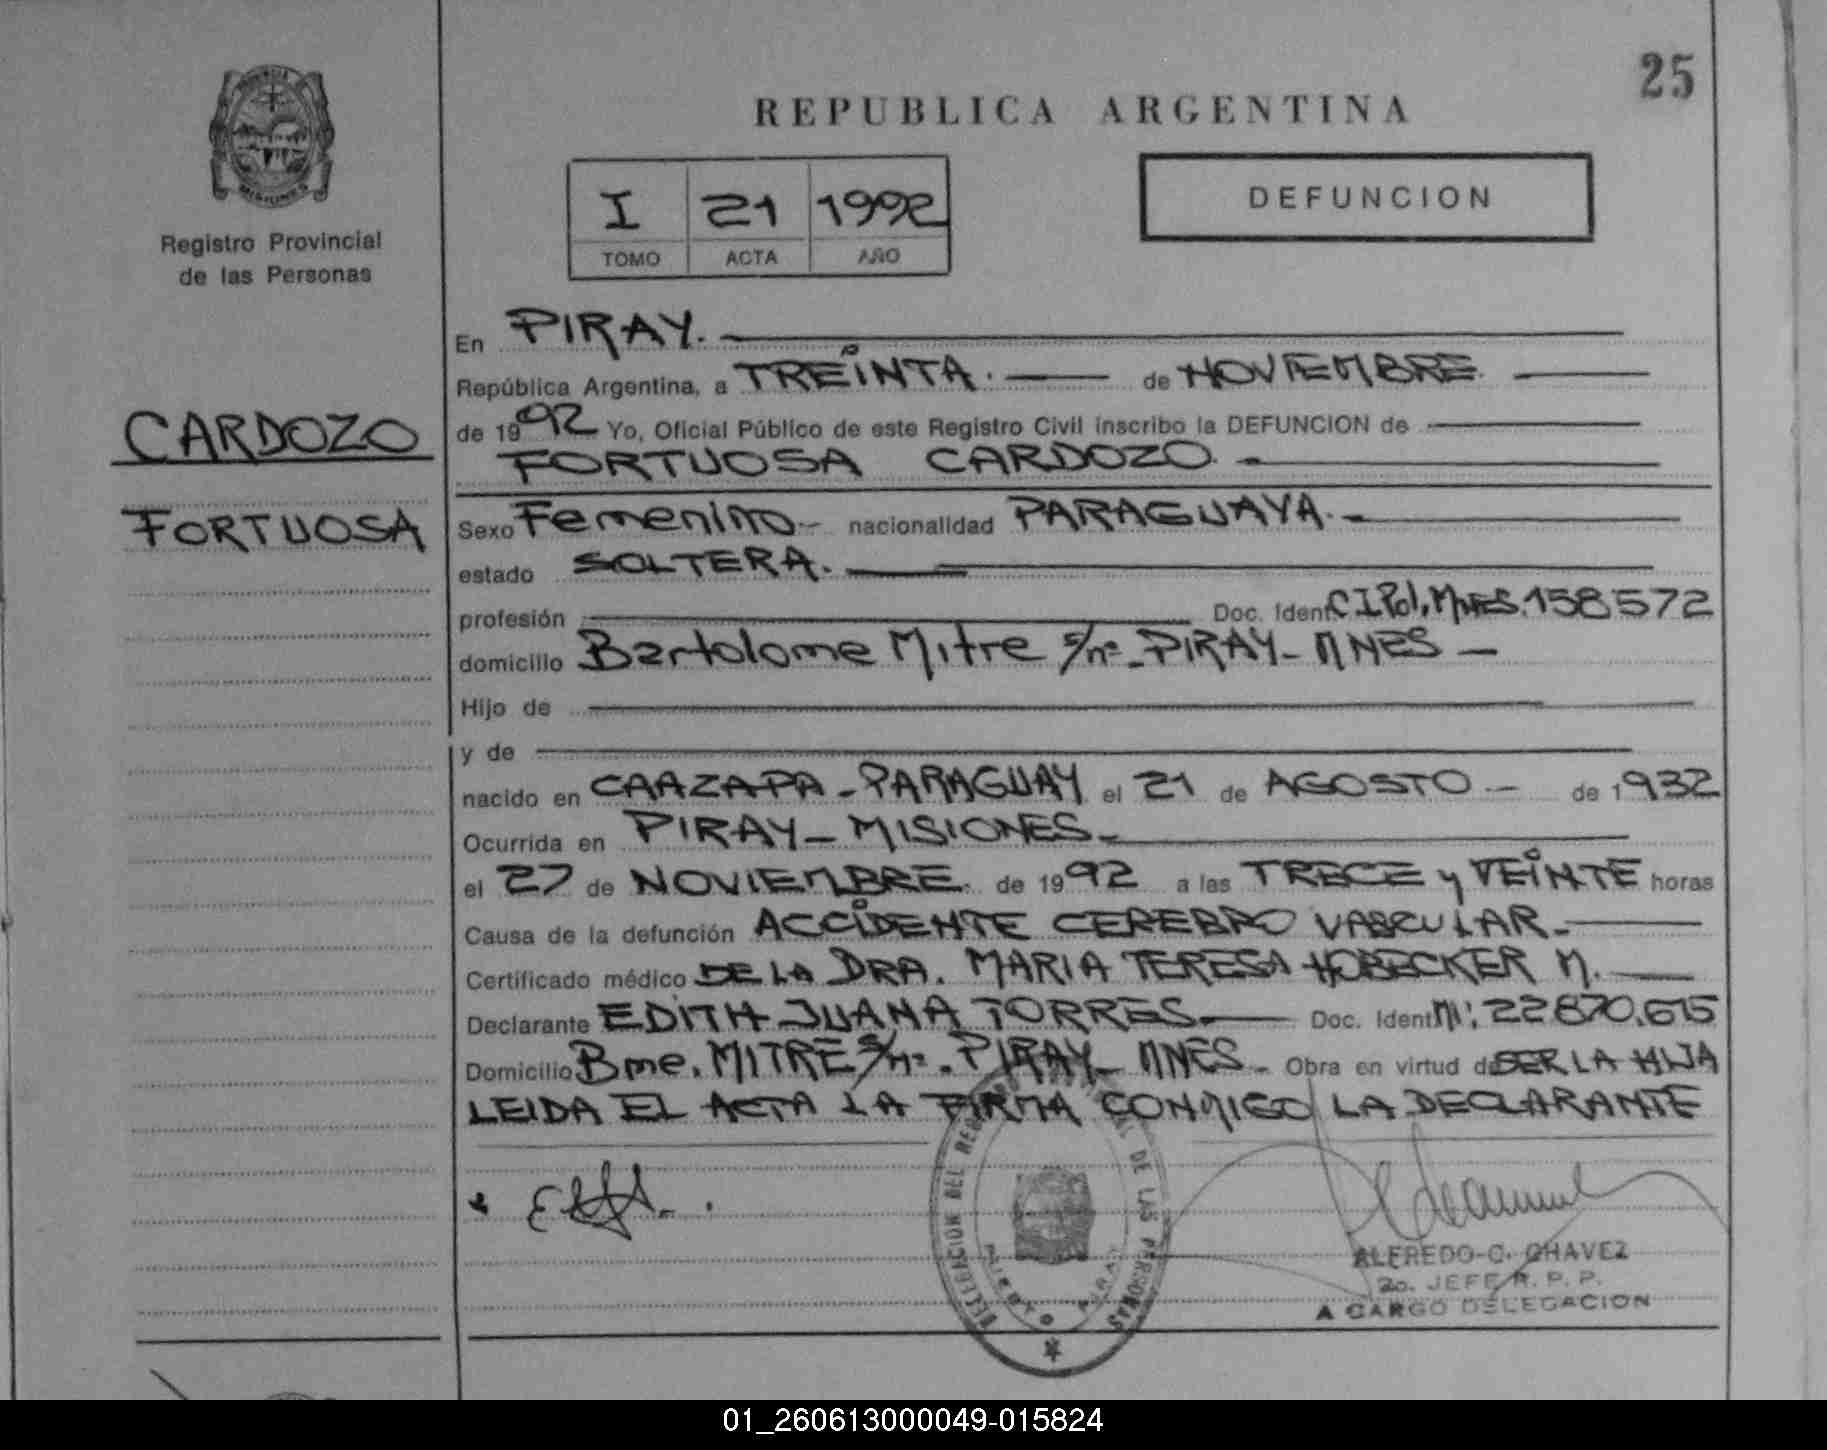 25
REPUBLICA ARGENTINA
PROVINCIA
MISIONES
Registro Provincial
de las Personas
I 21 1992
TOMO ACTA AÑO
DEFUNCION
CARDOZO
FORTUOSA
En PIRAY.
República Argentina, a TREINTA. de NOVIEMBRE.
de 1992 Yo, Oficial Público de este Registro Civil inscribo la DEFUNCION de
FORTUOSA CARDOZO.
Sexo Femenino- nacionalidad PARAGUAYA.-
estado SOLTERA.
profesión Doc. Ident. C I Pol. MNES. 158572
domicilio Bartolome Mitre s/nº-PIRAY-MNES-
Hijo de
y de
nacido en CAAZAPA-PARAGUAY el 21 de AGOSTO- de 1932
Ocurrida en PIRAY-MISIONES-
el 27 de NOVIEMBRE. de 1992 a las TRECE y VEINTE horas
Causa de la defunción ACCIDENTE CEREBRO VASCULAR.-
Certificado médico DE LA DRA. MARIA TERESA HOBECKER M.
Declarante EDITH JUANA TORRES. Doc. Ident. 22870.615
Domicilio Bme. MITRE s/nº-PIRAY-MNES- Obra en virtud de SER LA HIJA
LEIDA EL ACTA LA FIRMA CONMIGO LA DECLARANTE
DELEGACION DEL DE LAS PERSONAS
PIRAY
ALFREDO C. CHAVEZ
2o. JEFE R. P. P.
A CARGO DELEGACION
01_260613000049-015824